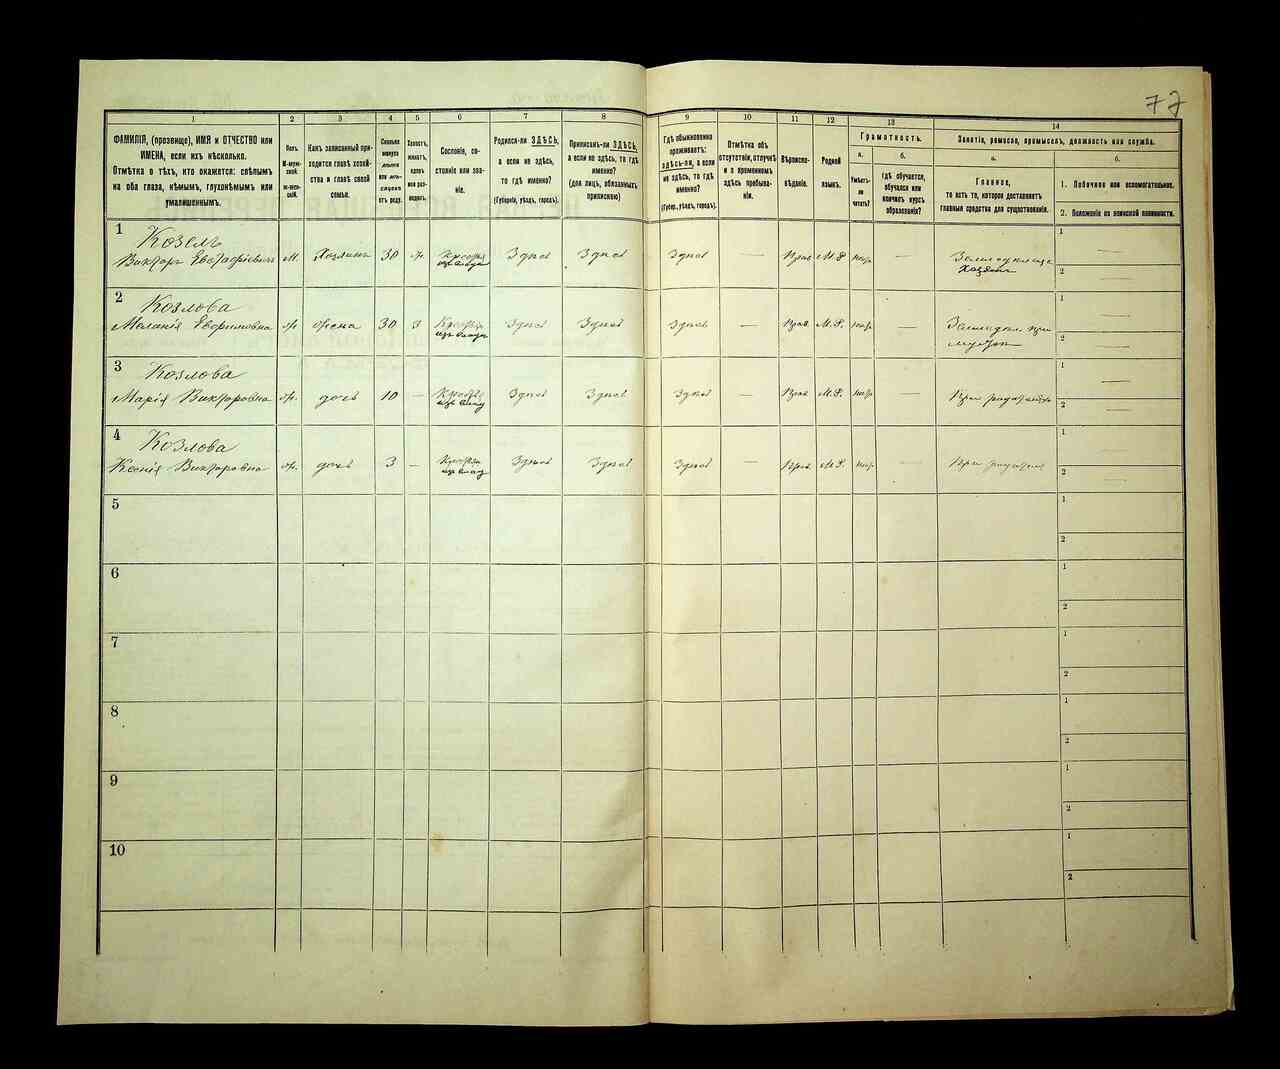 77
1 2 3 4 5 6 7 8 9 10 11 12 13 14
ФАМИЛІЯ, (прозвище), ИМЯ и ОТЧЕСТВО или
ИМЕНА, если ихъ нѣсколько.
Отмѣтка о тѣхъ, кто окажется: слѣпымъ
на оба глаза, нѣмымъ, глухонѣмымъ или
умалишеннымъ.
Полъ.
М-муж-
ской.
Ж-жен-
скій.
Какъ записанный при-
ходится главѣ хозяй-
ства и главѣ своей
семьи.
Сколько
минуло
лѣтъ
или мѣ-
сяцевъ
отъ роду.
Холостъ,
женатъ,
вдовъ
или раз-
веденъ.
Сословіе, со-
стояніе или зва-
ніе.
Родился-ли ЗДѢСЬ,
а если не здѣсь,
то гдѣ именно?
(Губернія, уѣздъ, городъ).
Приписанъ-ли ЗДѢСЬ,
а если не здѣсь, то гдѣ
именно?
(для лицъ, обязанныхъ
припискою)
Гдѣ обыкновенно
проживаетъ:
здѣсь-ли, а если
не здѣсь, то гдѣ
именно?
(Губер., уѣздъ, городъ).
Отмѣтка объ
отсутствіи, отлучкѣ
и о временномъ
здѣсь пребыва-
ніи.
Вѣроиспо-
вѣданіе.
Родной
языкъ.
Грамотность.
а.
Умѣетъ-
ли
читать?
б.
гдѣ обучается,
обучался или
кончилъ курсъ
образованія?
Занятіе, ремесло, промыселъ, должность или служба.
а.
Главное,
то есть то, которое доставляетъ
главныя средства для существованія.
б.
1. Побочное или вспомогательное.
2. Положеніе по воинской повинности.
1
Козелъ
Викторъ Евстафіевичъ м. Хозяинъ 30 ж. Крестья здѣсь здѣсь здѣсь — Прав М.Р. негр. —
изъ влад
Хозяинъ
1
2
2
Козлова
Меланія Ефримовна ж жена 30 з Крестья здѣсь здѣсь здѣсь — Прав М.Р. негр. — Земледѣл. при
изъ влад мужѣ
1
2
3
Козлова
Марія Викторовна ж. дочь 10 — Крестья здѣсь здѣсь здѣсь — Прав М.Р. негр. — При родителях
изъ влад
1
2
4
Козлова
Ксенія Викторовна ж. дочь 3 — Крестья здѣсь здѣсь здѣсь — Прав. М.Р. негр. — При родителях
изъ влад
1
2
5
1
2
6
1
2
7
1
2
8
1
2
9
1
2
10
1
2